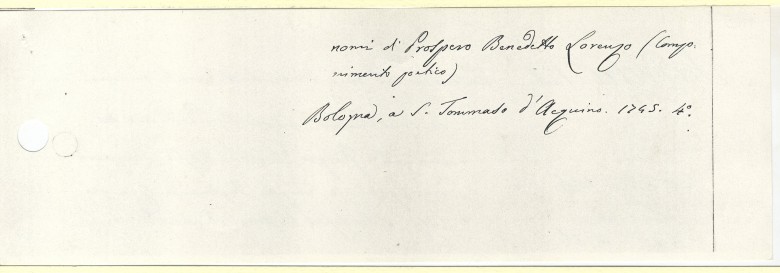 nomi di Prospero Benedetto Lorenzo (Compo-
nimento poetico)
Bologna, a S. Tommaso d'Acquino. 1745. 4°.